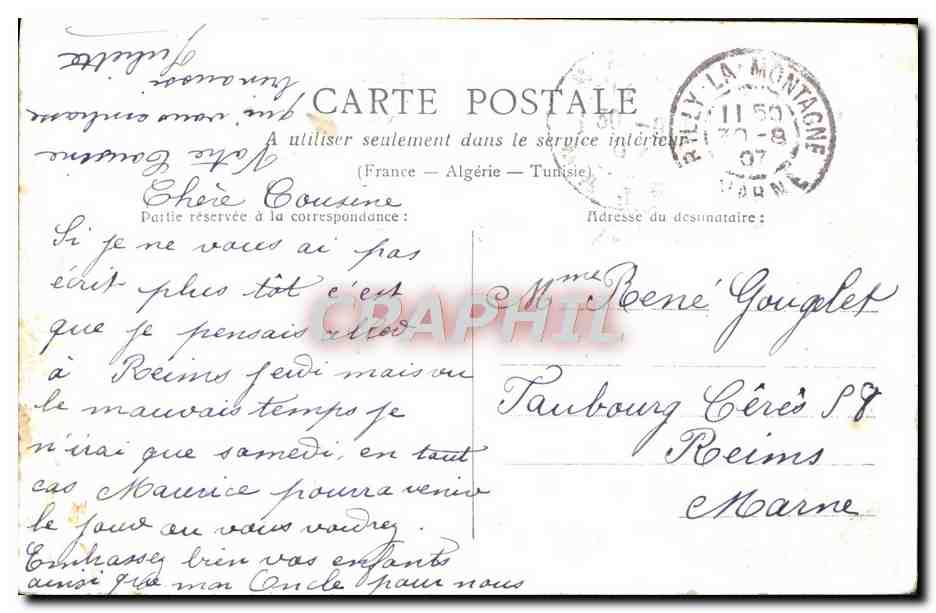 CARTE POSTALE
A utiliser seulement dans le service intérieur
(France — Algérie — Tunisie)
Partie réservée à la correspondance :
Adresse du destinataire :
RILLY-LA-MONTAGNE
11 50
30-8
07
MARNE
Chère Cousine
Si je ne vous ai pas
écrit plus tôt c'est
que je pensais
à Reims jeudi mais vu
le mauvais temps je
n'irai que samedi, en tout
cas Maurice pourra venir
le jour ou vous voudrez.
Embassez bien vos enfants
ainsi que mon Oncle pour nous
Votre Cousine
qui vous embrasse
Juliette
Mme René Gouglet
Faubourg Cérès 58
Reims
Marne
CRAPHIL